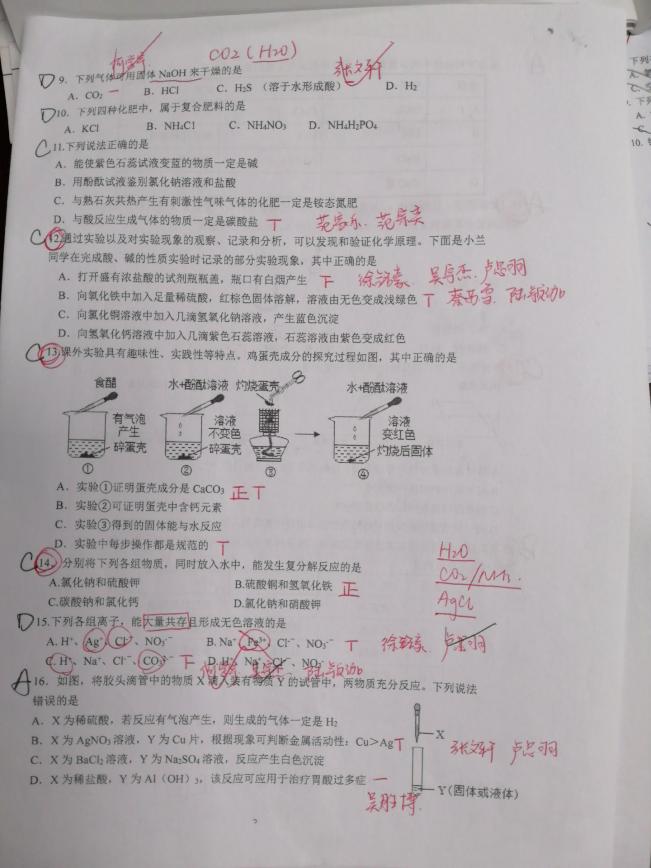 CO2(H2O)
D 9. 下列气体可用固体 NaOH 来干燥的是
A. CO₂ B. HCl C. H₂S (溶于水形成酸) D. H₂
D 10. 下列四种化肥中,属于复合肥料的是
A. KCl B. NH₄Cl C. NH₄NO₃ D. NH₄H₂PO₄
C 11.下列说法正确的是
A. 能使紫色石蕊试液变蓝的物质一定是碱
B. 用酚酞试液鉴别氯化钠溶液和盐酸
C. 与熟石灰共热产生有刺激性气味气体的化肥一定是铵态氮肥
D. 与酸反应生成气体的物质一定是碳酸盐 T
C 12.通过实验以及对实验现象的观察、记录和分析,可以发现和验证化学原理。下面是小兰
同学在完成酸、碱的性质实验时记录的部分实验现象,其中正确的是
A. 打开盛有浓盐酸的试剂瓶瓶盖,瓶口有白烟产生
B. 向氧化铁中加入足量稀硫酸,红棕色固体溶解,溶液由无色变成浅绿色 T
C. 向氯化铜溶液中加入几滴氢氧化钠溶液,产生蓝色沉淀
D. 向氢氧化钙溶液中加入几滴紫色石蕊溶液,石蕊溶液由紫色变成红色
C 13.课外实验具有趣味性、实践性等特点。鸡蛋壳成分的探究过程如图,其中正确的是
食醋 水+酚酞溶液 灼烧蛋壳 水+酚酞溶液
有气泡产生 碎蛋壳 溶液不变色 碎蛋壳 溶液变红色 灼烧后固体
① ② ③ ④
A. 实验①证明蛋壳成分是 CaCO₃ 正 T
B. 实验②可证明蛋壳中含钙元素
C. 实验③得到的固体能与水反应
D. 实验中每步操作都是规范的 T
C 14. 分别将下列各组物质,同时放入水中,能发生复分解反应的是
H2O
A.氯化钠和硫酸钾 B.硫酸铜和氢氧化铁 正
CO2/NH3
C.碳酸钠和氯化钙 D.氯化钠和硝酸钾
AgCl
D 15.下列各组离子,能大量共存且形成无色溶液的是
A. H⁺、Ag⁺、Cl⁻、NO₃⁻ B. Na⁺、Fe³⁺、Cl⁻、NO₃⁻ T
C. H⁺、Na⁺、Cl⁻、CO₃²⁻ D. H⁺、Na⁺、Cl⁻、NO₃⁻
A 16. 如图,将胶头滴管中的物质 X 滴入装有物质 Y 的试管中,两物质充分反应。下列说法
错误的是
A. X 为稀硫酸,若反应有气泡产生,则生成的气体一定是 H₂
B. X 为 AgNO₃ 溶液,Y 为 Cu 片,根据现象可判断金属活动性:Cu>Ag T
X
C. X 为 BaCl₂ 溶液,Y 为 Na₂SO₄ 溶液,反应产生白色沉淀
D. X 为稀盐酸,Y 为 Al(OH)₃,该反应可应用于治疗胃酸过多症
Y(固体或液体)